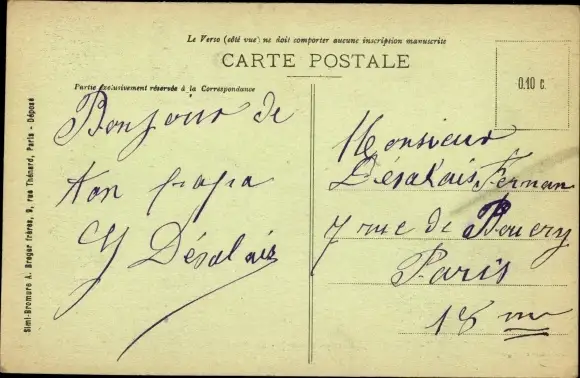 Le Verso (côté vue) ne doit comporter aucune inscription manuscrite
CARTE POSTALE
Partie exclusivement réservée à la Correspondance
0.10 c.
Bonjour de
ton papa
Y Désalais
Monsieur
Désalais Fernan
7 rue de
Paris
18 me
Simi-Bromure A. Breger frères, 9, rue Thénard, Paris - Déposé